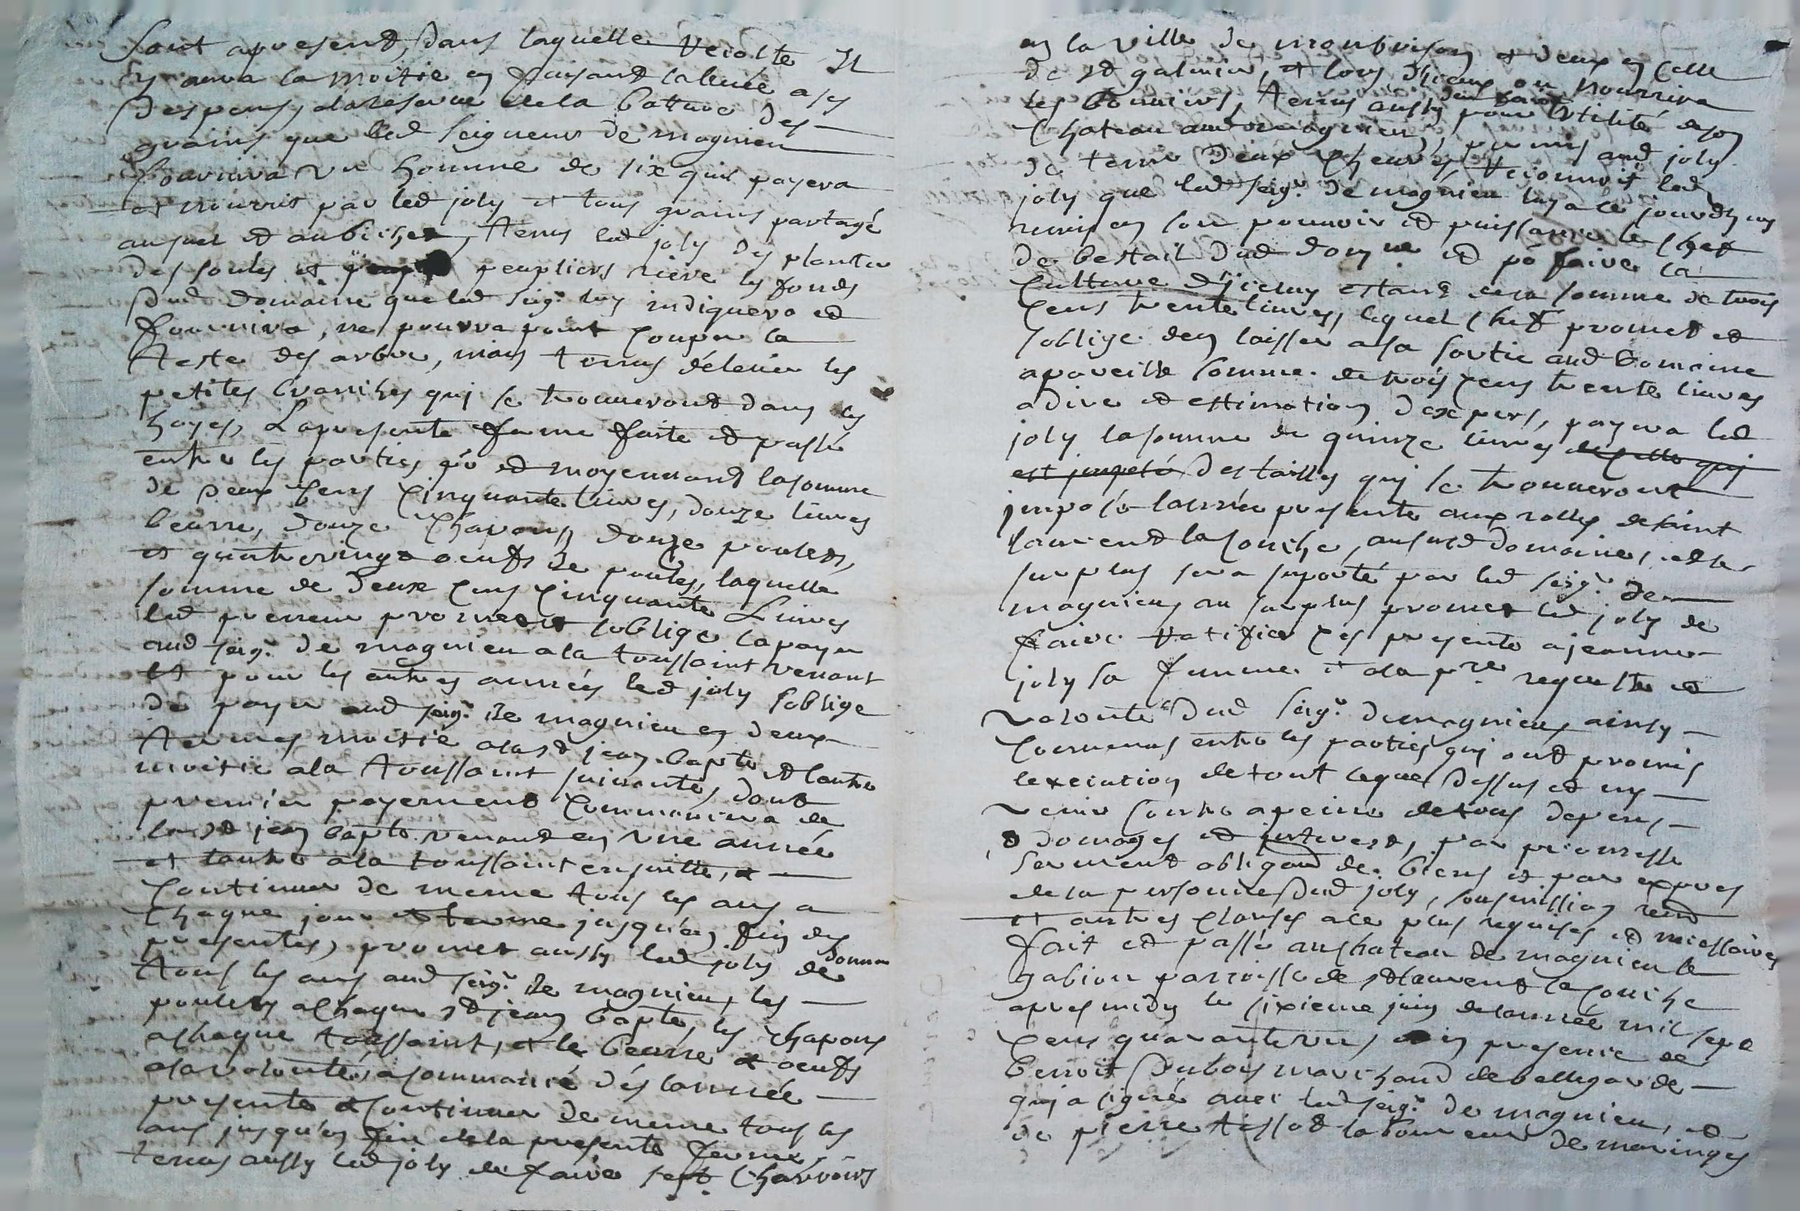 sont apresent, dans laquelle recolte Il
y aura la moitié en faisant la levée a ses
despens, alareserve de la batture des
grains que led seigneur de magnieu
fournira un homme de six qui payera
et nourris par led joly et tous grains partagé
ausuel et aubichet, tenus led joly de planter
des soules et peupliers rière les fonds
dud domaine que led seigr luy indiquera et
fournira, ne pourra point couper la
teste des arbre, mais tenus délever les
petites branches qui se trouveront dans les
hayes, Lapresente ferme faite et passé
entre les parties po et moyennant lasomme
de deux cens cinquante livres, douze livres
beurre, douze chapons, douze poulets,
et quatrevingt oeufs de poules, laquelle
somme de deux cens cinquante Livres
led preneur promet et soblige la payer
aud seigr de magnieu a la toussaint venant
Et pour les autres années led joly soblige
de payer aud seigr de magnieu en deux
termes moitié alast jean bapte et lautre
moitié ala toussaint suivante, dont
premier payement commencera de
la st jean bapte venant en une année
et lautre ala toussaint ensuitte, et
continuer de meme tous les ans a
chaque jour et terme jusqu'en fin des
presentes, promet aussy led joly de donner
tous les ans aud seigr de magnieu, les
poulets a chaque st jean bapte, les chapons
achaque toussaint, et le beurre et oeufs
alavolonté, acommancé dés lannée
presente et continuer de meme tous les
ans jusqu'en fin de la presente ferme
tenus aussy led joly de faire sept charrois
en la ville de monbrison et deux en celle
de st galmier, et lors diceux on nourrira
les bouviers, tenus aussy pour lutilité de son
chateau aud magnieu, permis aud joly
de tenir deux chevres, reconnoit led
joly que led seigr de magnieu luy a ce jourdhuy
remis en son pouvoir et puissance le chef
de bestail dud domne et po faire la
culture d'iceluy estant de la somme de trois
cens trente livres, lequel chef promet et
soblige den laisser a sa sortie aud domaine
apareille somme de trois cens trente livres
adire et estimation dexpers, payera led
joly lasomme de quinze livres de celle qui
est imposé des tailles qui se trouveront
imposé lannée presente aux rolles de saint
laurent la conche, ausud domaine, et le
surplus sera suporté par led seigr de
magnieu au surplus promet led joly de
faire ratifier ces presente ajeanne
joly sa femme et ala pre requeste et
volonté dud seigr de magnieu ainsy
convenus entre les parties qui ont promis
lexecution de tout ceque dessus et ny
venir contre apeine de tous depens
domages et interest, par promesse
serment obligaon de biens et par expres
de la personne dud joly, soumission renon
et autres clauses ace plus requises et nécessaires
fait et passé auchateau de magnieu le
gabion parroisse de st laurent la conche
apres midy le sixieme juin de lannée mil sept
cens quarante un en presence de
benoit dubois marchand de bellegarde
qui a signé avec led seigr de magnieu, et
de pierre tissot laboureur de maringes